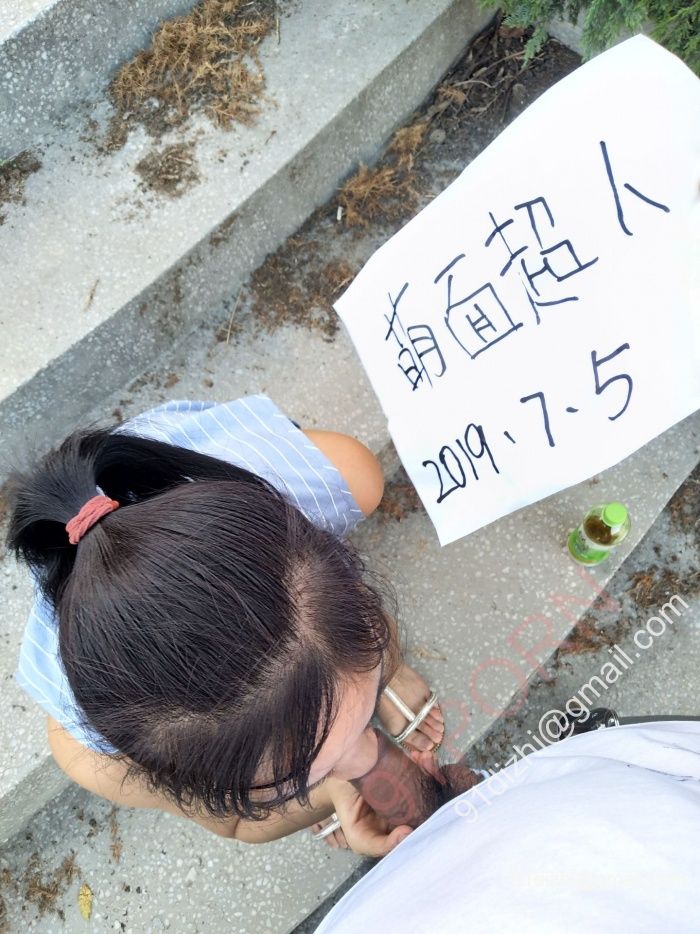 萌面超人
2019、7、5
91PORN
91dizhi@gmail.com